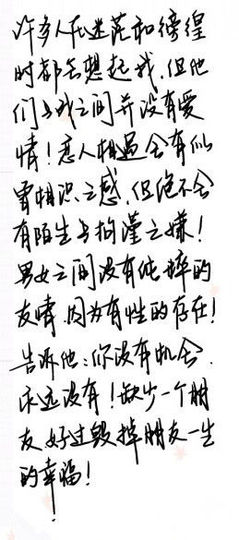 许多人在迷茫和彷徨
时都会想起我.但他
们与我之间并没有爱
情！恋人相遇会有似
曾相识之感,但绝不会
有陌生与拘谨之嫌！
男女之间没有纯粹的
友情.因为有性的存在！
告诉他:你没有机会.
永远没有！缺少一个朋
友好过毁掉朋友一生
的幸福！